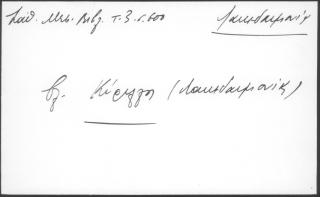 Καθ. Μητ. Βιβλ. τ. 3. σ. 600
Λακεδαιμονίας
βλ. Κύριλλος (Λακεδαιμονίας)